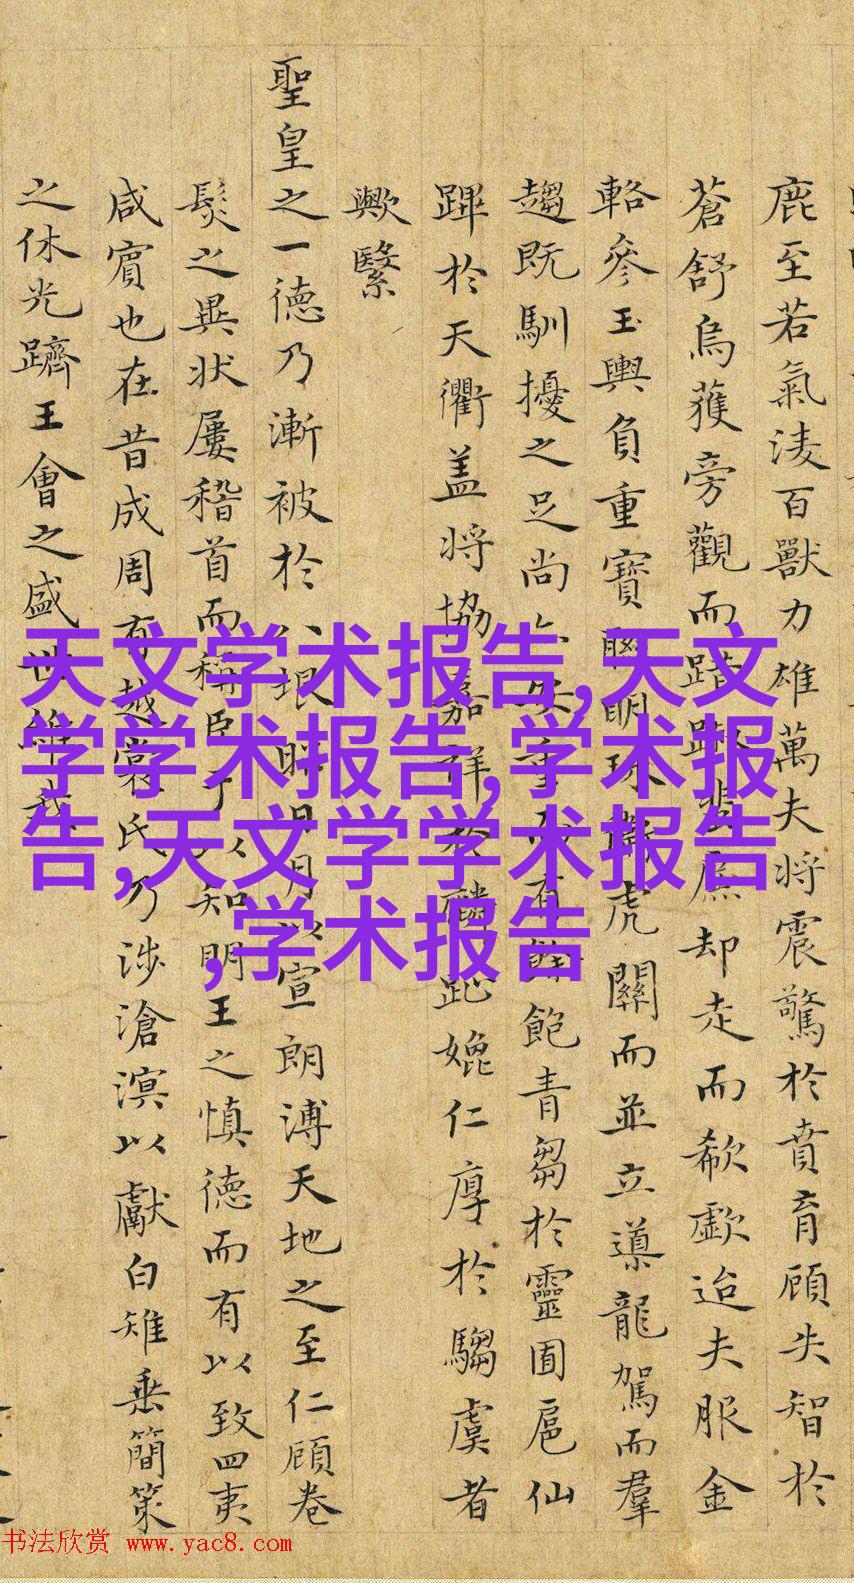 鹿至若氣淩百獸力雄萬夫将震驚於賁育顧失智於
蒼舒烏獲旁觀而踖踧蜚廉却走而欷歔迨夫服金
輅参玉輿負重寶聯明珠虎關而並立導龍駕而羣
趨既馴擾之足尚有飽青芻於靈囿扈仙
蹕於天衢盖将協嘉祥於麟趾媲仁厚於騶虞者
歟繄
聖皇之一德乃漸被於八垠月以宣朗溥天地之至仁顧卷
髮之異状屢稽首而稱臣知明王之慎德而有以致四夷
咸賓也在昔成周有越裳氏乃涉滄溟以獻白雉垂簡策
之休光躋王會之盛世
天文学术报告,天文
学学术报告,学术报
告,天文学学术报告
,学术报告
书法欣赏 www.yac8.com